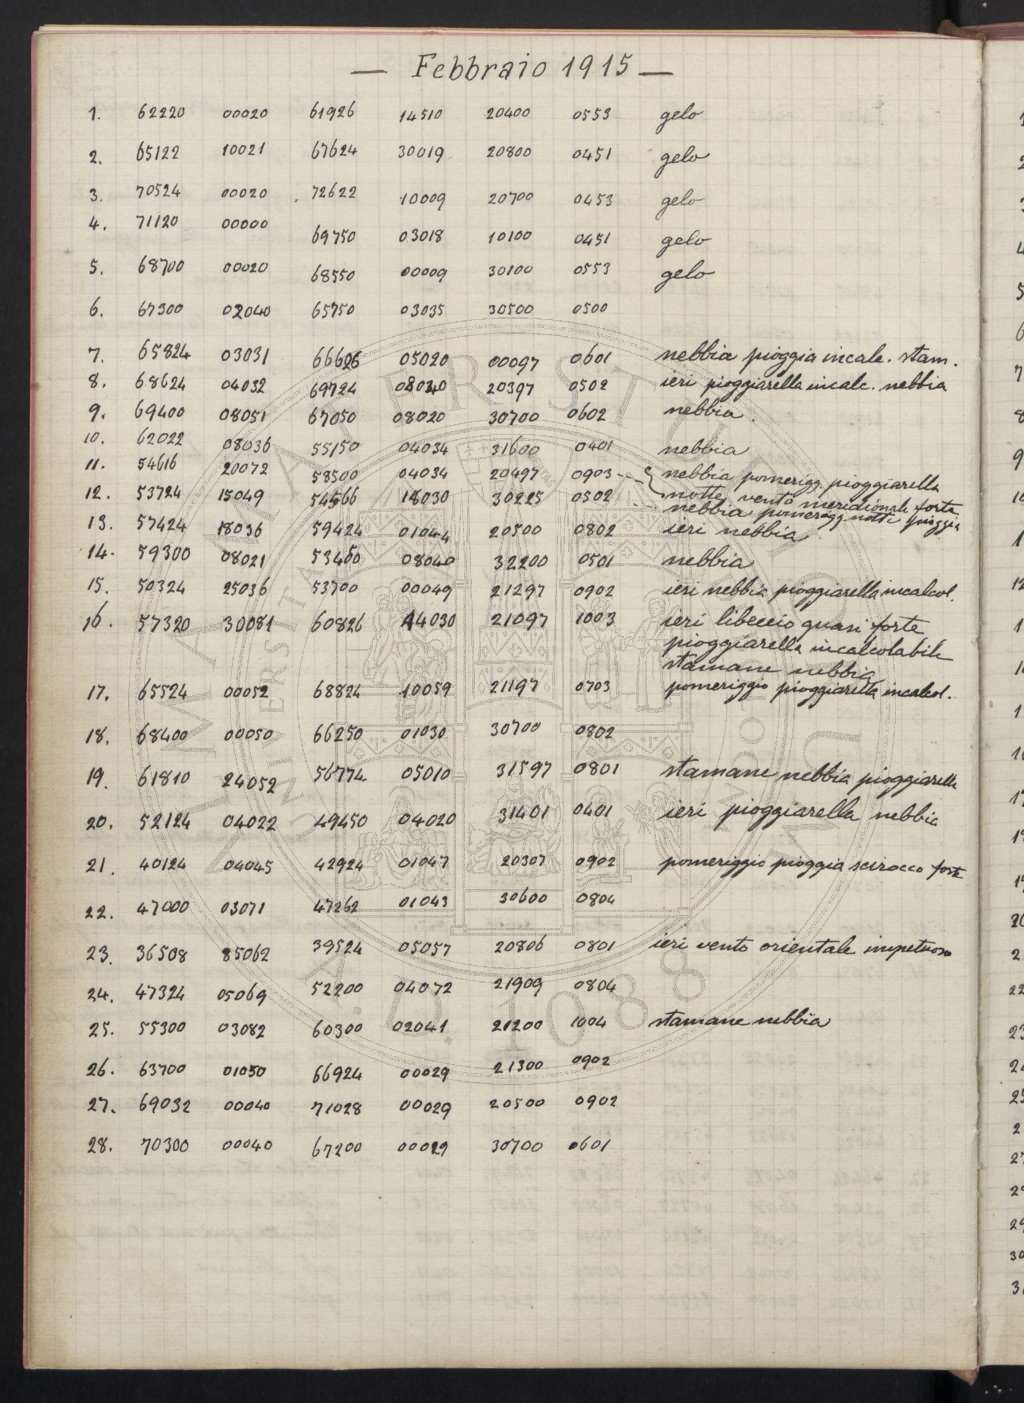 — Febbraio 1915 —
1. 62220 00020 61926 14510 20400 0553 gelo
2. 65122 10021 67624 30019 20800 0451 gelo
3. 70524 00020 72622 10009 20700 0453 gelo
4. 71120 00000 69750 03018 10100 0451 gelo
5. 68700 00020 68550 00009 30100 0553 gelo
6. 67300 02040 65750 03035 30500 0500
7. 65824 03031 66626 05020 00097 0601 nebbia pioggia incalc. stam.
8. 68624 04032 69724 08020 20397 0502 ieri pioggiarella incalc. nebbia
9. 69400 08051 67050 08020 30700 0602 nebbia.
10. 62022 08036 55150 04034 31600 0401 nebbia
11. 54616 20072 58500 04034 20497 0903 nebbia pomerigg. pioggiarella
notte vento meridionale forte
12. 53724 15049 54566 18030 30225 0502 nebbia pomerigg notte pioggia
13. 57424 18036 59424 01044 20500 0802 ieri nebbia
14. 59300 08021 53400 08040 32200 0501 nebbia
15. 50324 25036 53700 00049 21297 0902 ieri nebbia pioggiarella incalcol.
16. 57320 30081 60826 14030 21097 1003 ieri libeccio quasi forte
pioggiarella incalcolabile
stamane nebbia
17. 65524 00052 68824 10059 21197 0703 pomeriggio pioggiarella incalcol.
18. 68400 00050 66250 01030 30700 0802
19. 61810 24052 56774 05010 31597 0801 stamane nebbia pioggiarella
20. 52124 04022 49450 04020 31401 0401 ieri pioggiarella nebbia
21. 40124 04045 42924 01047 20307 0902 pomeriggio pioggia scirocco forte
22. 47000 03071 47262 01043 30600 0804
23. 36508 85062 39524 05057 20806 0801 ieri vento orientale impetuoso
24. 47324 05069 52200 04072 21909 0804
25. 55300 03082 60300 02041 21200 1004 stamane nebbia
26. 63700 01050 66924 00029 21300 0902
27. 69032 00040 71028 00029 20500 0902
28. 70300 00040 67200 00029 30700 0601